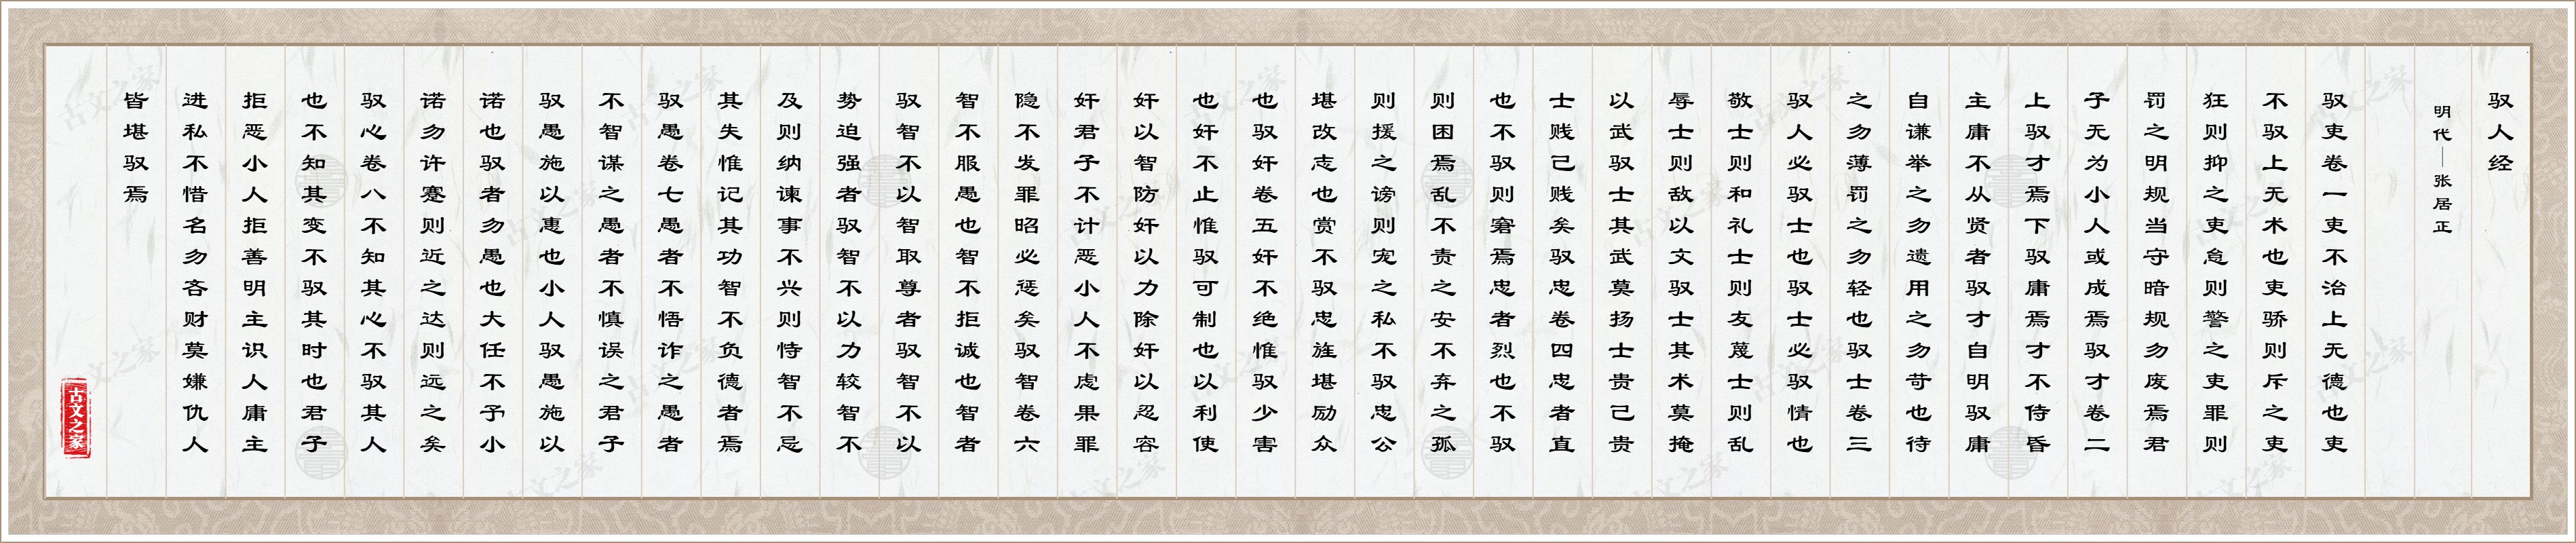 驭人经
明代——张居正
驭吏卷一吏不治上无德也吏
不驭上无术也吏骄则斥之吏
狂则抑之吏怠则警之吏罪则
罚之明规当守暗规勿废焉君
子无为小人或成焉驭才卷二
上驭才焉下驭庸焉才不侍昏
主庸不从贤者驭才自明驭庸
自谦举之勿遗用之勿苛也待
之勿薄罚之勿轻也驭士卷三
驭人必驭士也驭士必驭情也
敬士则和礼士则友蔑士则乱
辱士则敌以文驭士其术莫掩
以武驭士其武莫扬士贵己贵
士贱己贱矣驭忠卷四忠者直
也不驭则窘焉忠者烈也不驭
则困焉乱不责之安不弃之孤
则援之谤则宠之私不驭忠公
堪改志也赏不驭忠旌堪励众
也驭奸卷五奸不绝惟驭少害
也奸不止惟驭可制也以利使
奸以智防奸以力除奸以忍容
奸君子不计恶小人不虑果罪
隐不发罪昭必惩矣驭智卷六
智不服愚也智不拒诚也智者
驭智不以智取尊者驭智不以
势迫强者驭智不以力较智不
及则纳谏事不兴则恃智不忌
其失惟记其功智不负德者焉
驭愚卷七愚者不悟诈之愚者
不智谋之愚者不慎误之君子
驭愚施以惠也小人驭愚施以
诺也驭者勿愚也大任不予小
诺勿许蹇则近之达则远之矣
驭心卷八不知其心不驭其人
也不知其变不驭其时也君子
拒恶小人拒善明主识人庸主
进私不惜名勿吝财莫嫌仇人
皆堪驭焉
古文之家